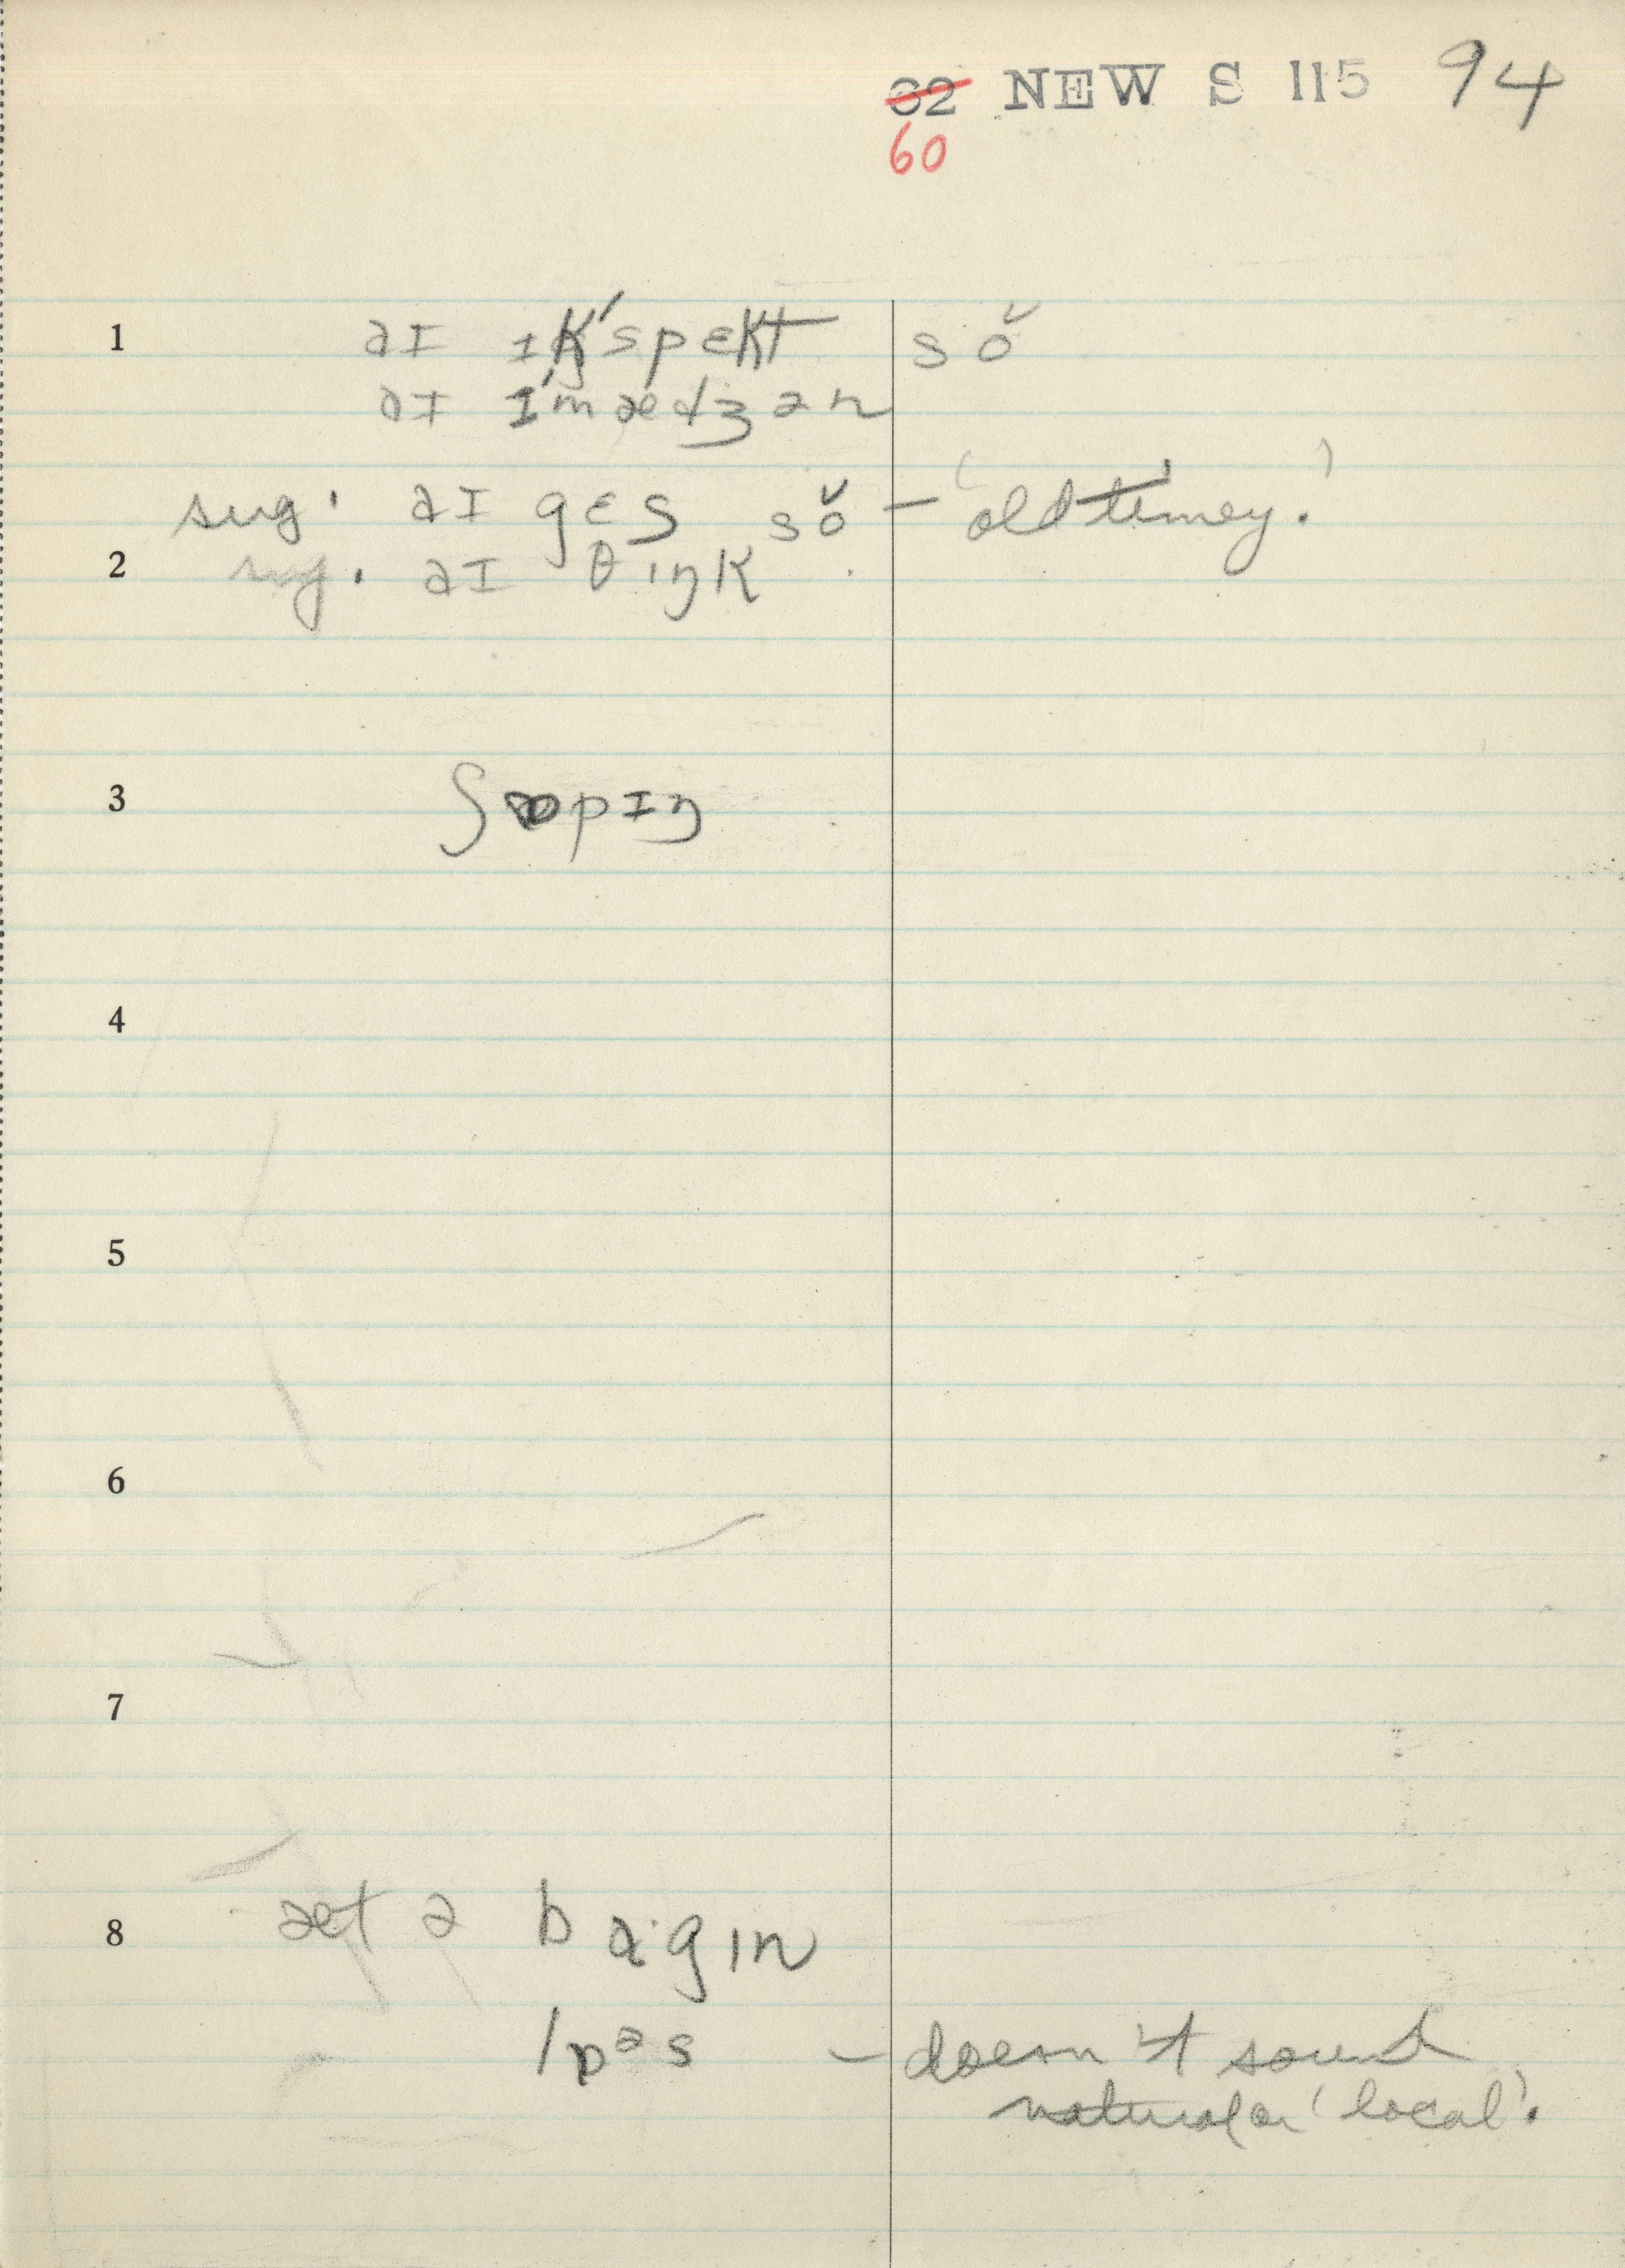 62 NEW S 115 94
60
1 aɪ ɪk'spɛkt sŏ
aɪ ɪ'mædʒən
sug. aɪ gɛs sŏ – 'old-timey.'
2 sug. aɪ θɪŋk
3 ʃɒpɪŋ
4
5
6
7
8 æt ə baˑgɪn
lɒəs – doesn't sound
natural or 'local'.